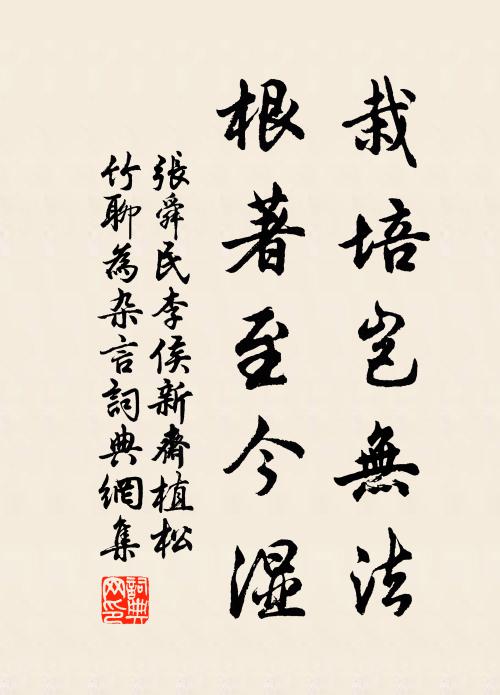 栽培岂無法
根著至今湿
張舜民李侯新齋植松
竹聊為杂言詞典網集
詞典网印